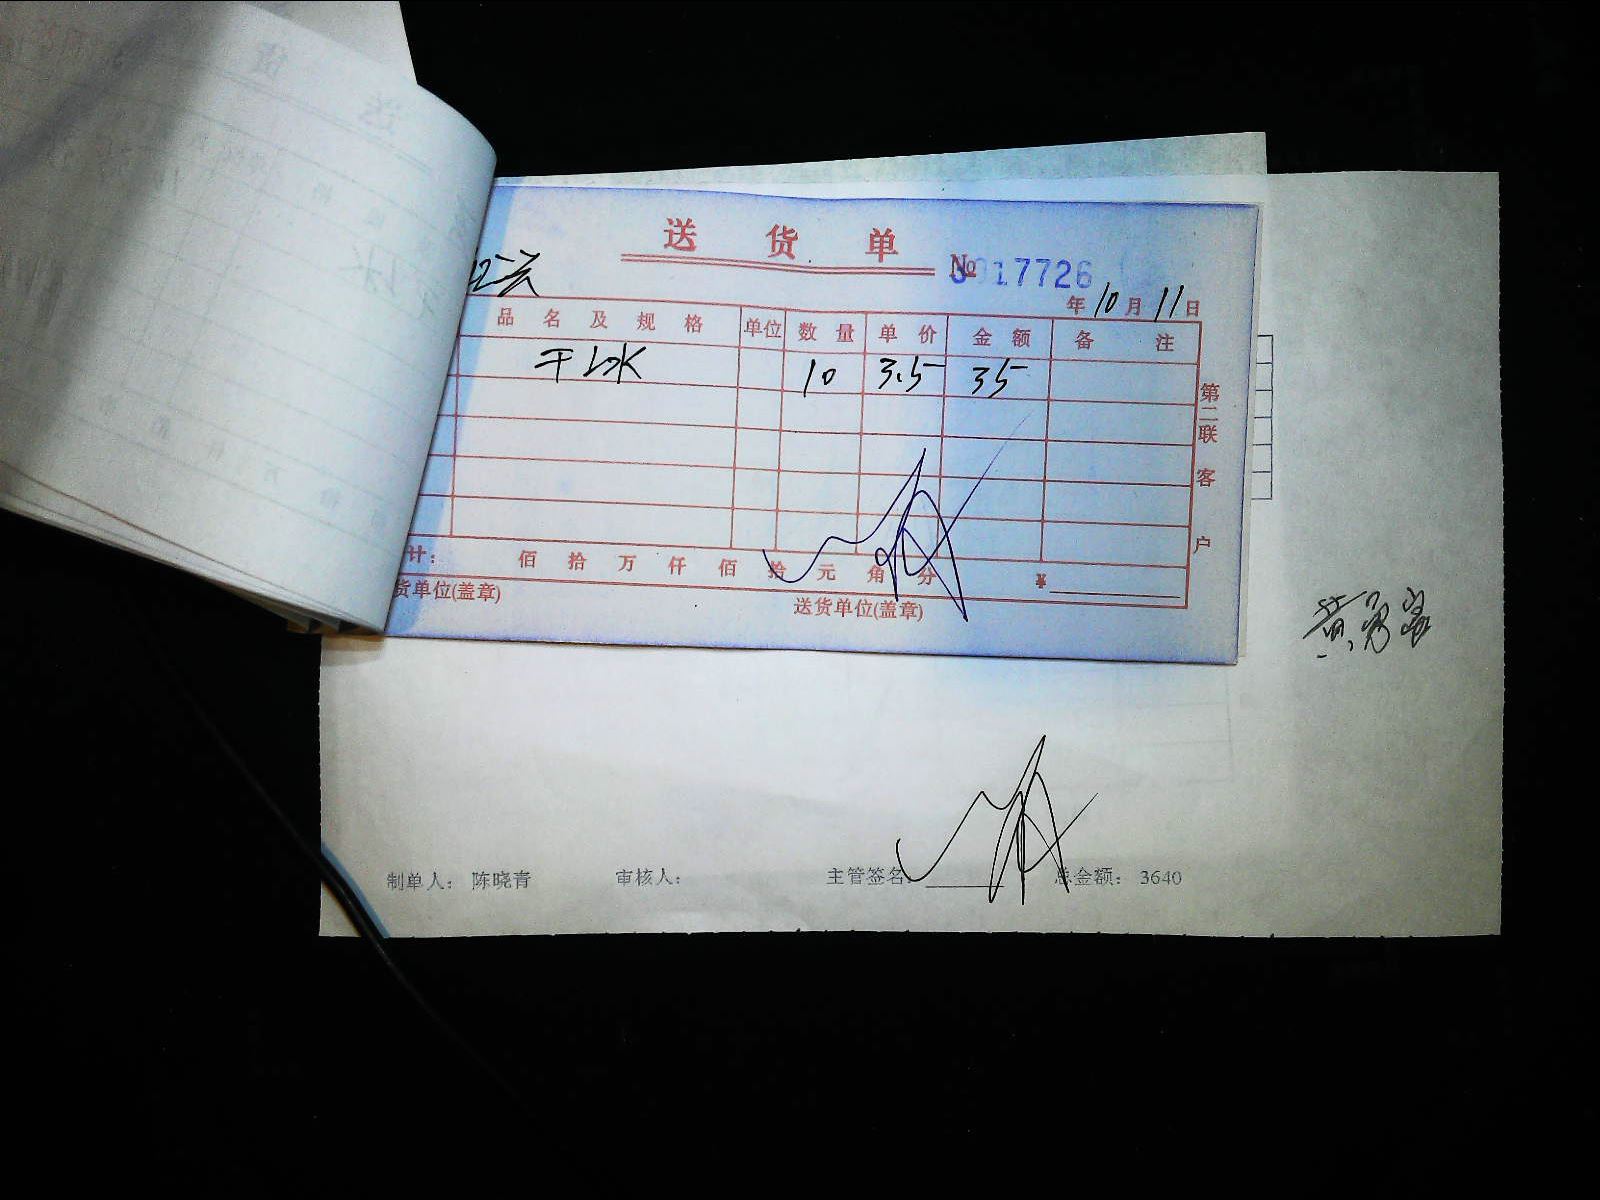 送 货 单
№ 0017726
年 10 月 11 日
品 名 及 规 格 单位 数 量 单 价 金 额 备 注
干冰 10 3.5 35
第二联 客户
计: 佰 拾 万 仟 佰 拾 元 角 分 ¥
货单位(盖章) 送货单位(盖章)
制单人: 陈晓青 审核人: 主管签名: 总金额: 3640